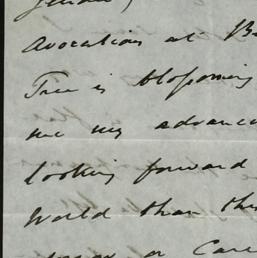 avocations at B
Tree is blossoming
me my advance
looking forward
World than th
or Care